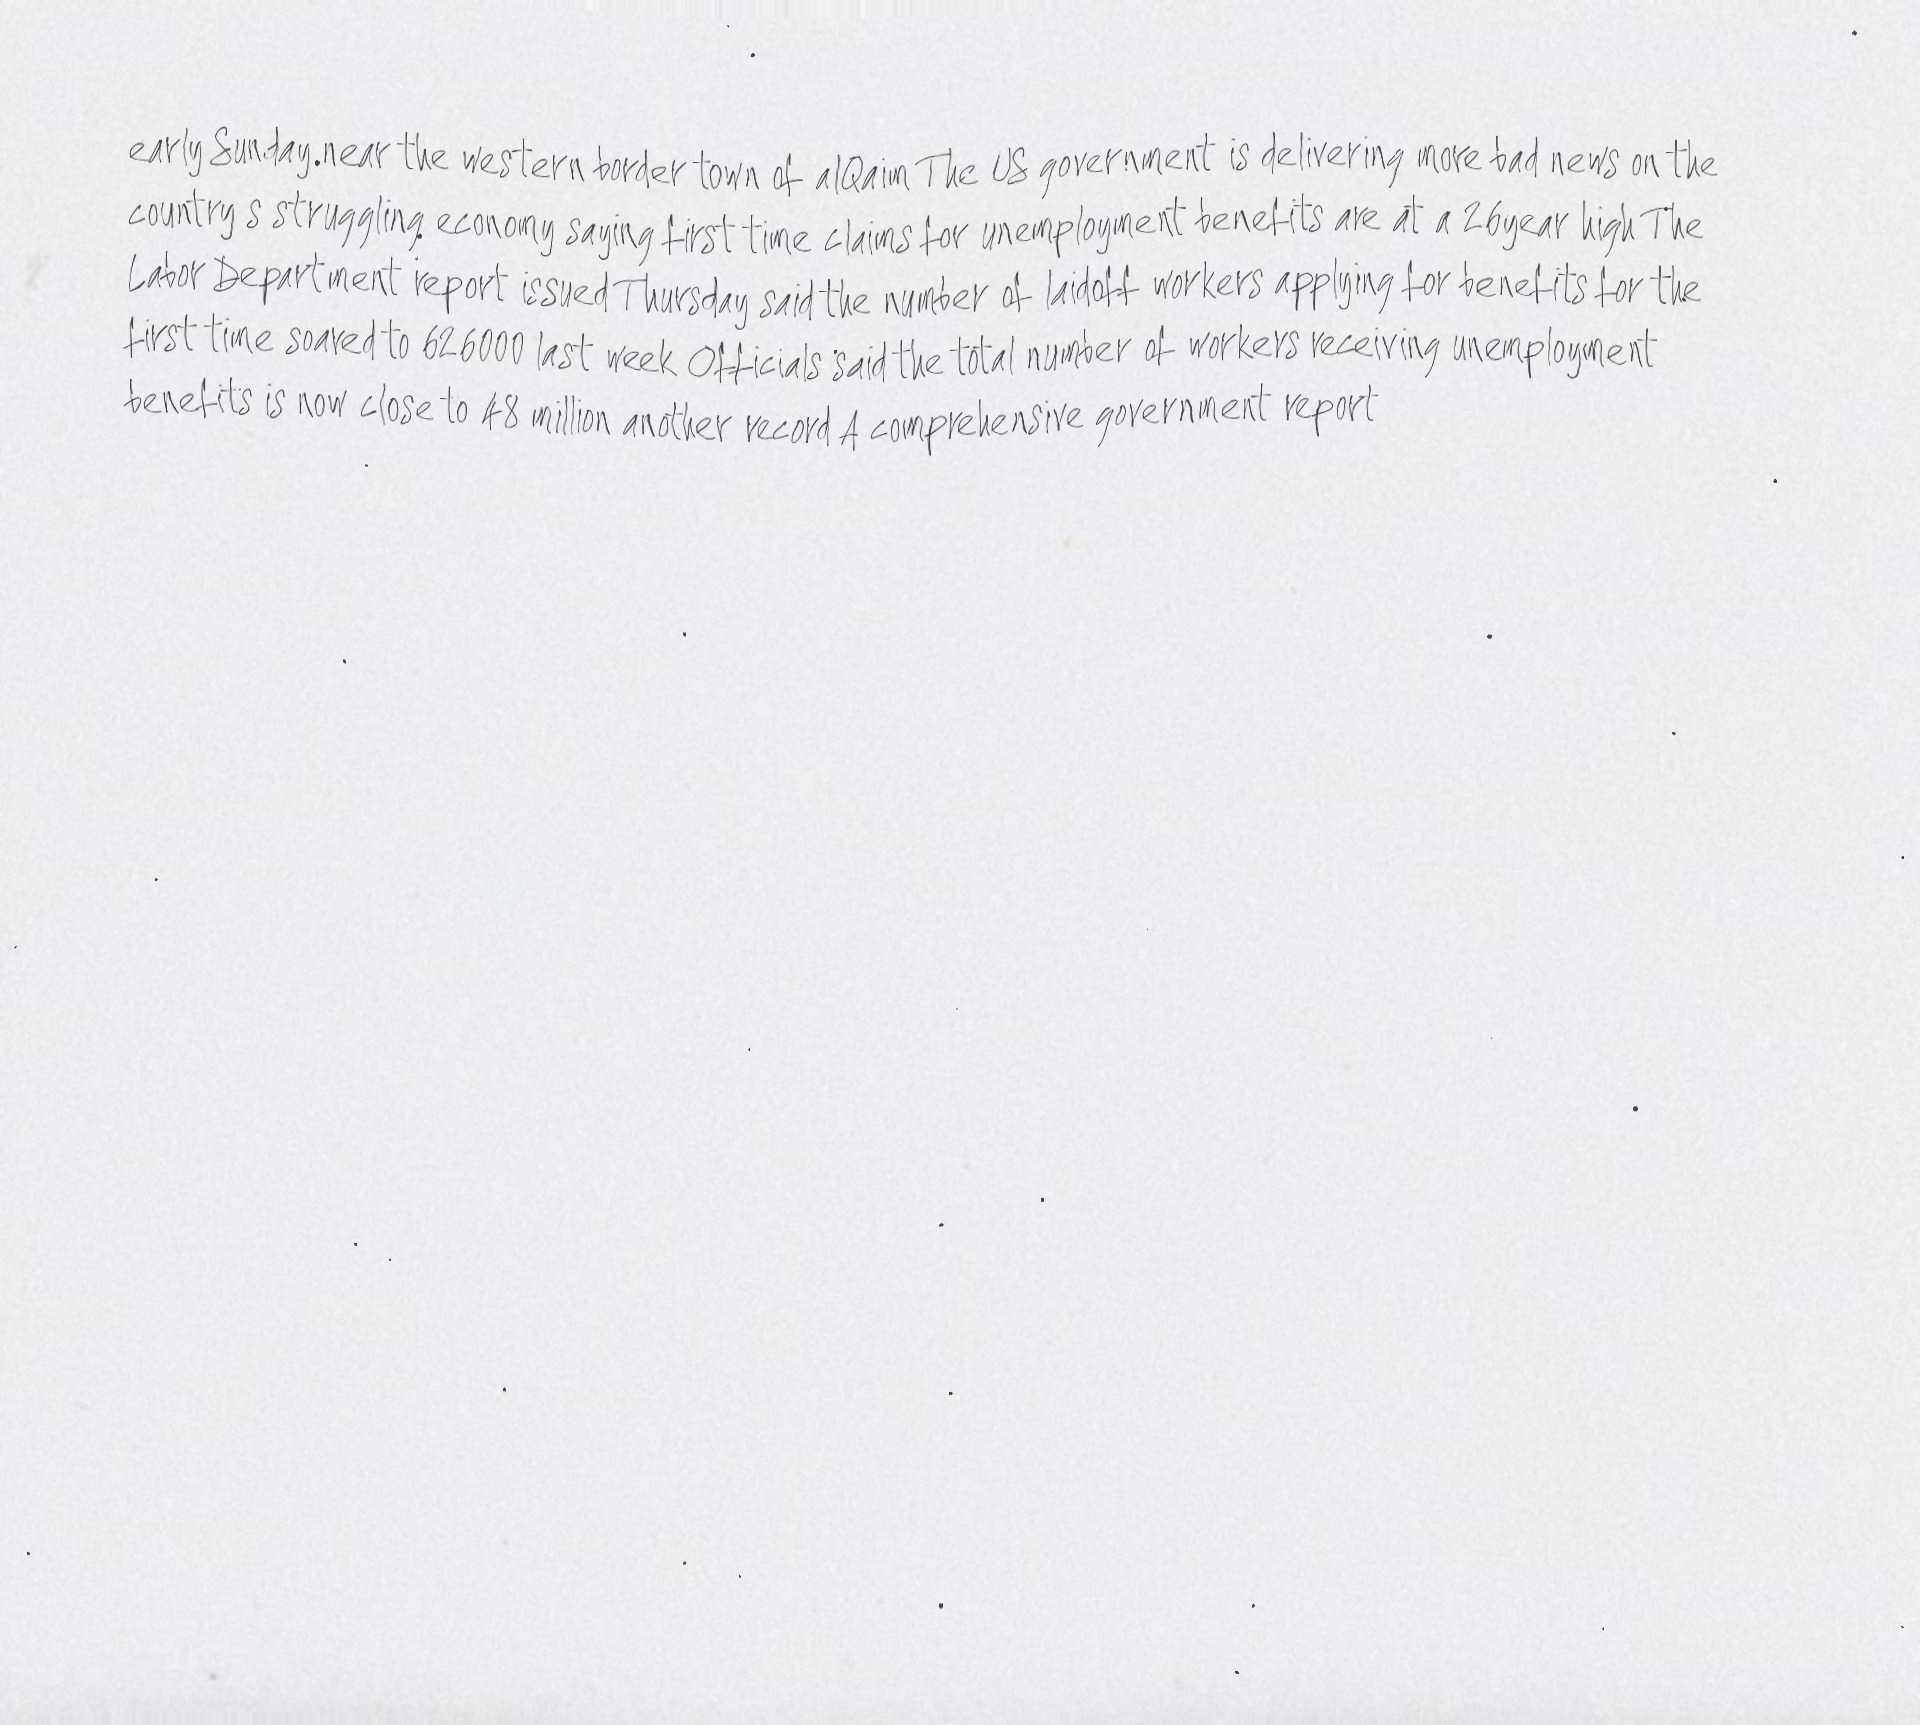 early Sunday near the western border town of alQaim The US government is delivering more bad news on the
country s struggling economy saying first time claims for unemployment benefits are at a 26year high The
Labor Department report issued Thursday said the number of laidoff workers applying for benefits for the
first time soared to 626000 last week Officials said the total number of workers receiving unemployment
benefits is now close to 48 million another record A comprehensive government report